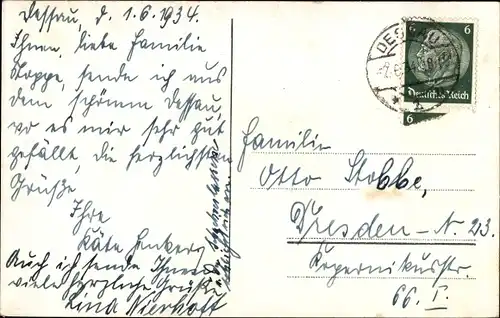 Dessau, d. 1.6.1934.
Ihnen, liebe Familie
Stoppe, sende ich aus
dem schönen Dessau,
wo es mir sehr gut
gefällt, die herzlichsten
Grüße
Ihre
Käte
Auch ich sende Ihnen
viele herzliche Grüße
Lina Nierhoff
DESSAU
6
6
Deutsches Reich
6
Familie
Otto Stobbe,
Dresden-N. 23.
Kopernikusstr.
66. I.